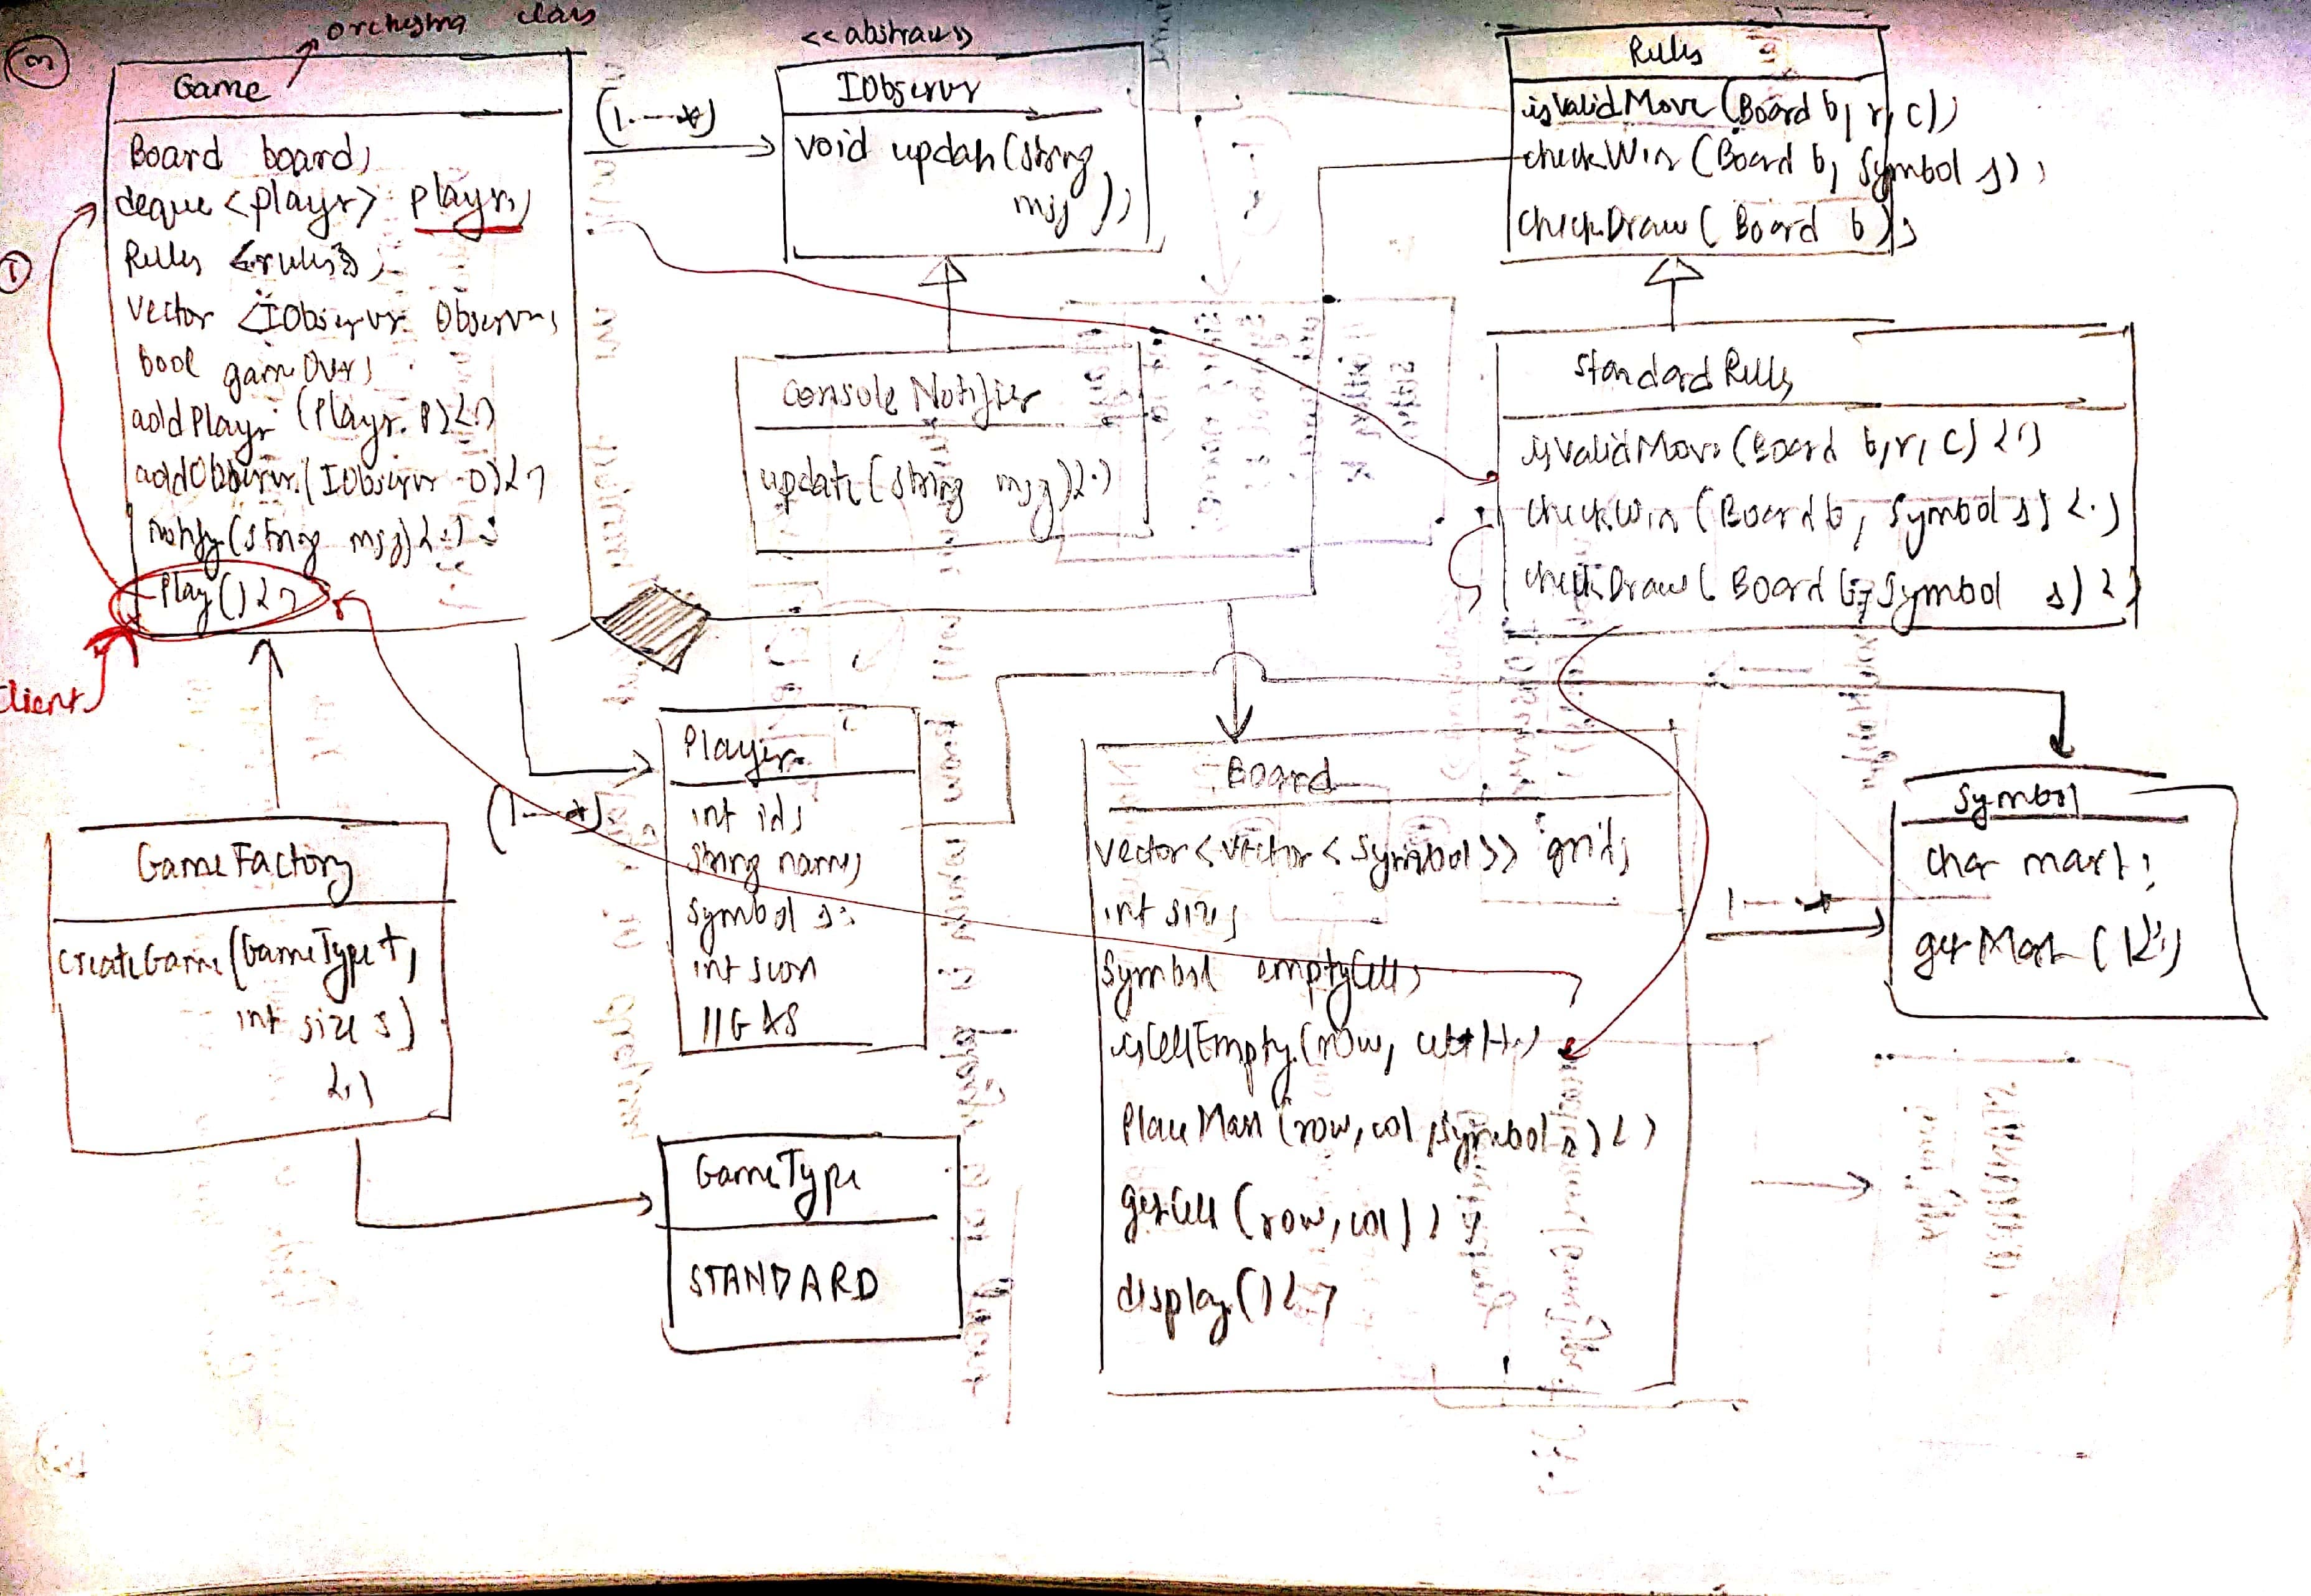 3
orchestra class
Game
Board board;
deque <player> player;
Rules <rules>;
Vector <IObserver Observer;
bool gameOver;
addPlayer (Player P) { }
addObserver (IObserver O) { }
notify (string msg) { } ;
Play() { }
1
Client
(1---*)
<<abstract>>
IObserver
void update (string
msg);
Console Notifier
update (string msg) { }
Rules
isValidMove (Board b, r, c);
checkWin (Board b, Symbol s);
checkDraw (Board b);
Standard Rules
isValidMove (Board b, r, c) { }
checkWin (Board b, Symbol s) { }
checkDraw (Board b, Symbol s) { }
GameFactory
createGame (GameType t,
int size s)
{ }
(1---*)
Player
int id;
string name;
symbol s;
int score
//G&S
GameType
STANDARD
Board
vector<vector<Symbol>> grid;
int size;
Symbol emptyCell;
isCellEmpty (row, col) { }
Place Mark (row, col, symbol s) { }
getCell (row, col) ;
display () { }
1---*
Symbol
char mark;
getMark () { }